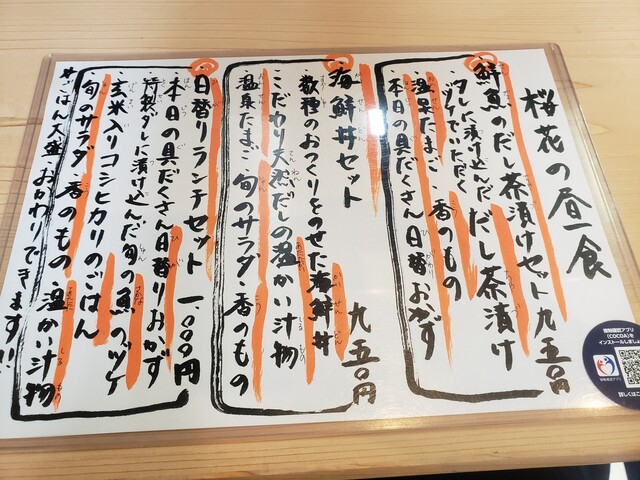 桜花の昼食
鮮魚のだし茶漬けセット 九五〇円
タレに漬け込んだだし茶漬け
ヅケでいただく
温泉たまご 香のもの
本日の具だくさん日替おかず
海鮮丼セット 九五〇円
数種のおつくりをのせた海鮮丼
こだわり天然だしの温かい汁物
温泉たまご 旬のサラダ・香のもの
日替りランチセット 一、〇〇〇円
本日の具だくさん日替りおかず
特製ダレに漬け込んだ旬の魚のヅケ
玄米入りコシヒカリのごはん
旬のサラダ・香のもの・温かい汁物
ごはん大盛・おかわりできます!!
(COCOA)を
インストールしましょう